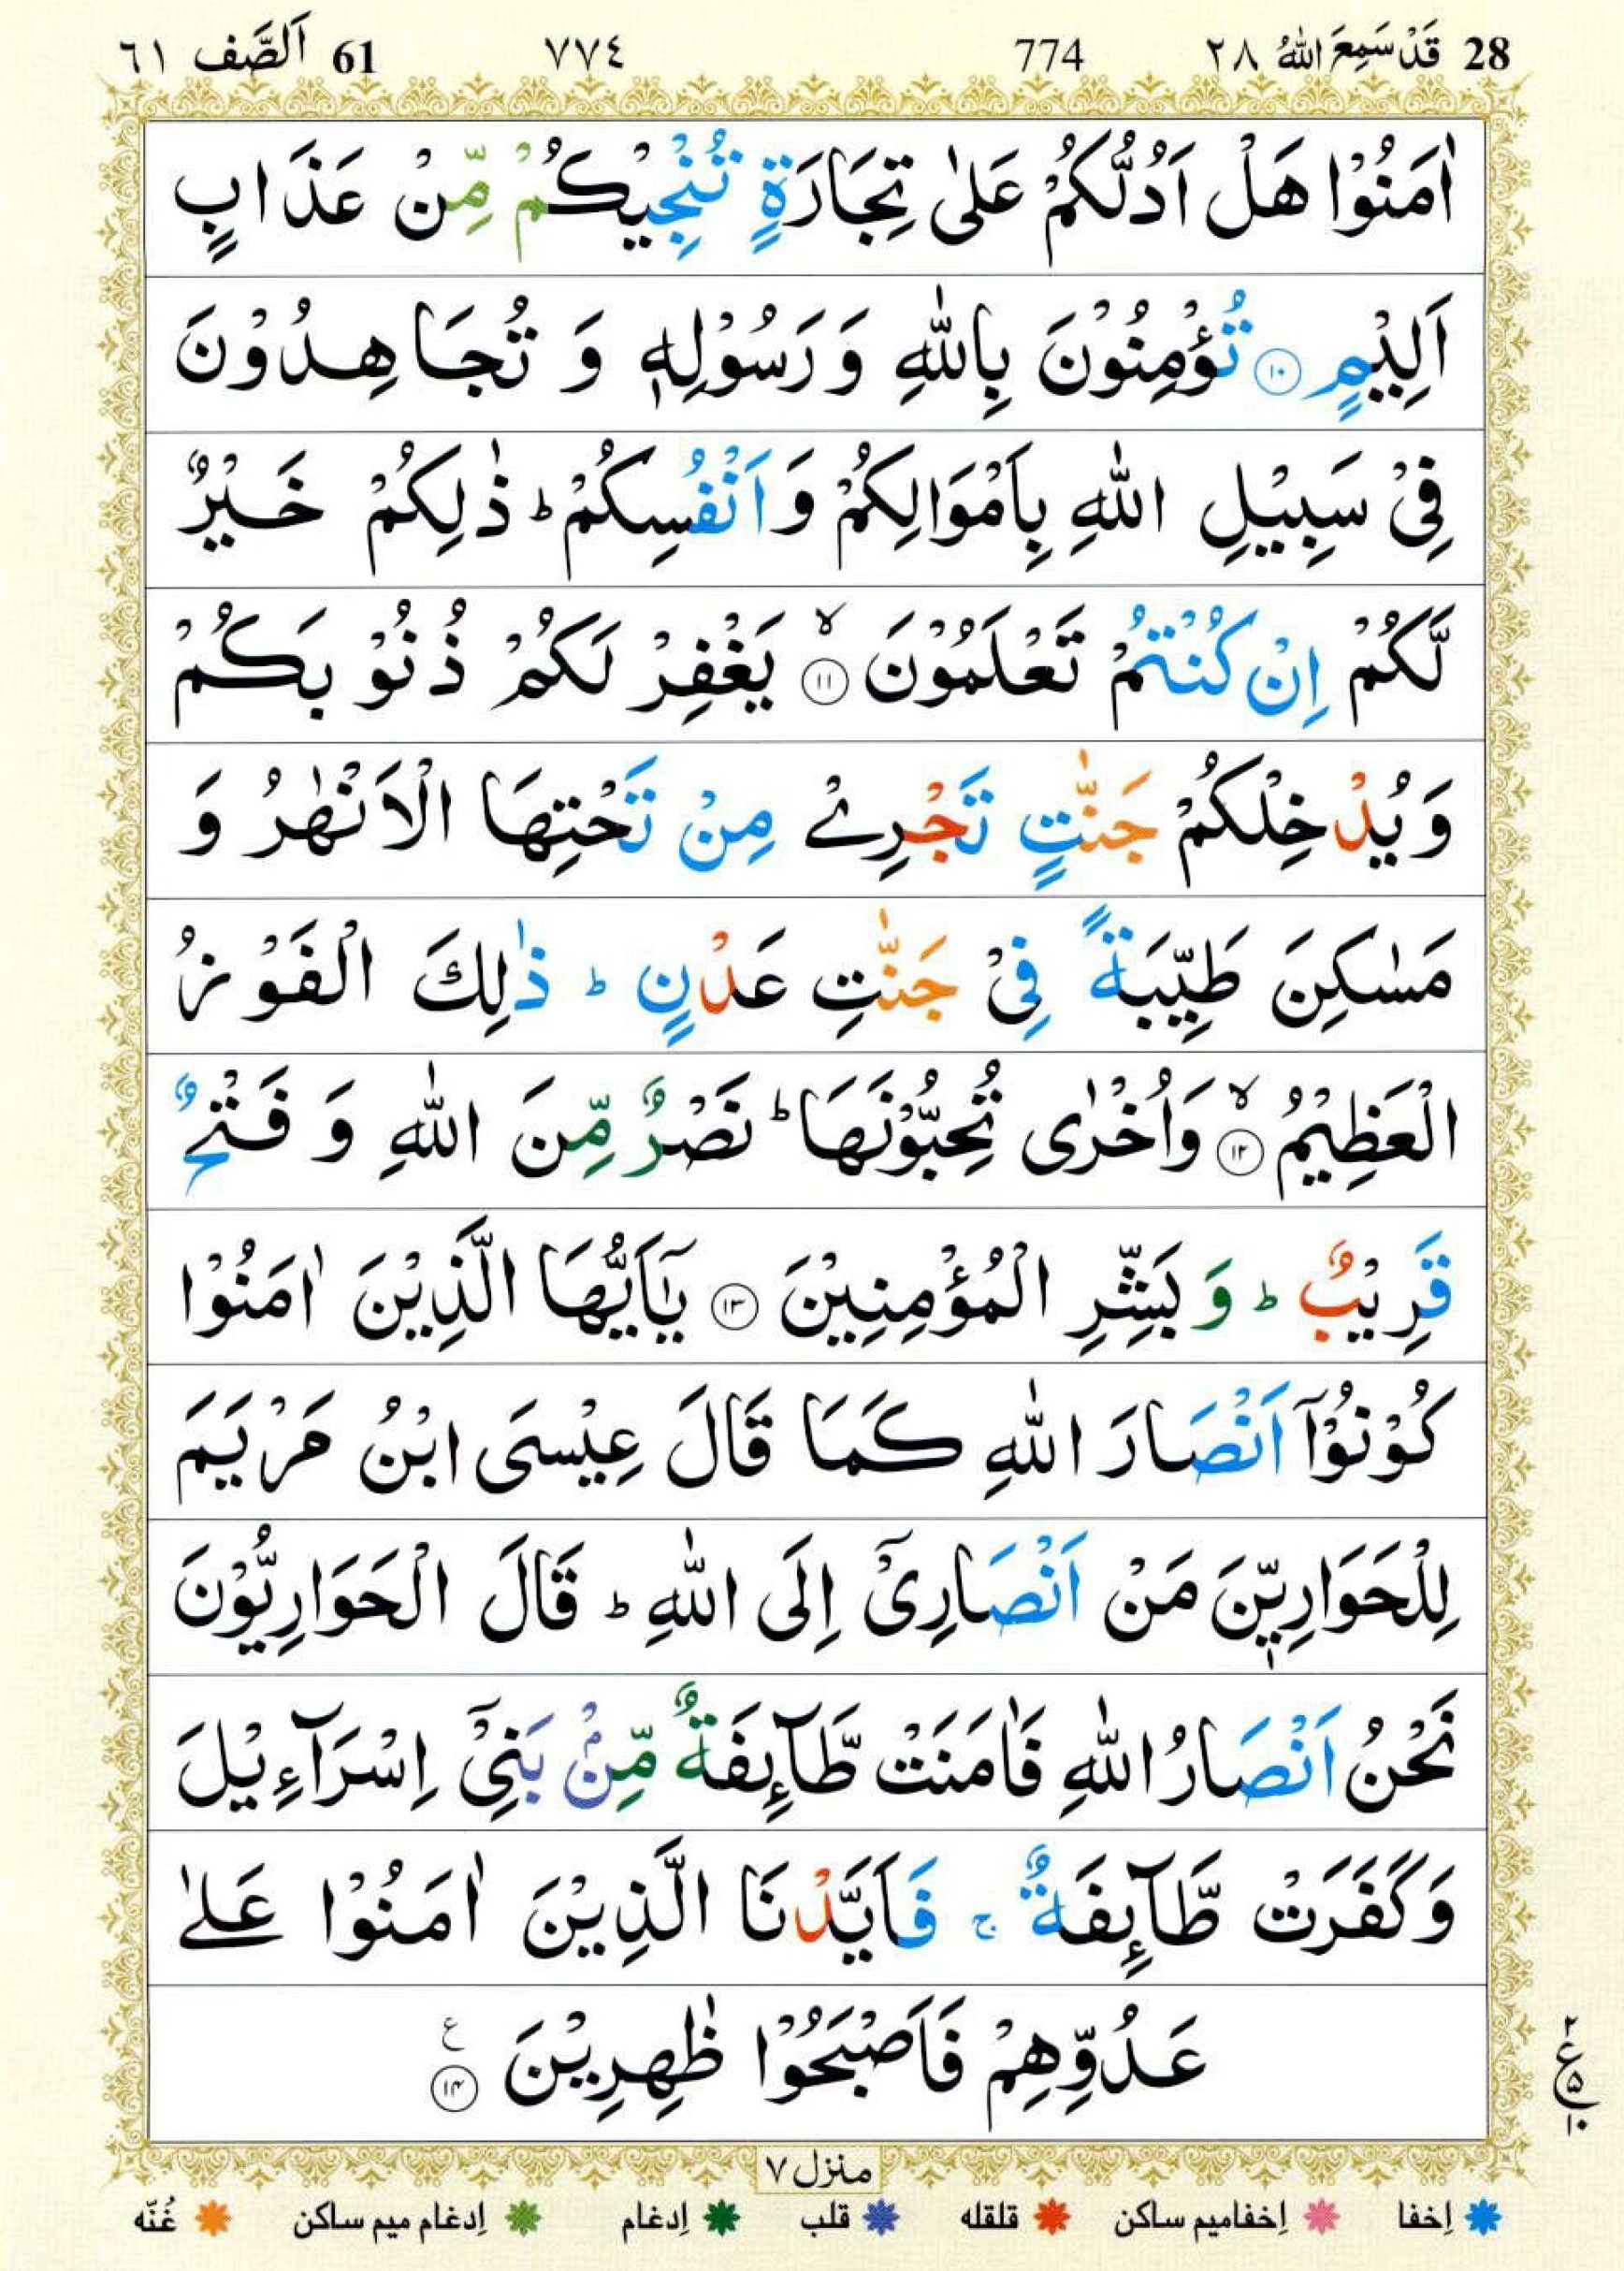 28 قَدْ سَمِعَ اللّٰهُ ٢٨ 774 ٧٧٤ 61 اَلصَّف ٦١
اٰمَنُوْا هَلْ اَدُلُّكُمْ عَلٰى تِجَارَةٍ تُنْجِيْكُمْ مِّنْ عَذَابٍ
اَلِيْمٍ ۝١٠ تُؤْمِنُوْنَ بِاللّٰهِ وَ رَسُوْلِهٖ وَ تُجَاهِدُوْنَ
فِىْ سَبِيْلِ اللّٰهِ بِاَمْوَالِكُمْ وَ اَنْفُسِكُمْ ؕ ذٰلِكُمْ خَيْرٌ
لَّكُمْ اِنْ كُنْتُمْ تَعْلَمُوْنَ ۙ۝١١ يَغْفِرْ لَكُمْ ذُنُوْبَكُمْ
وَ يُدْخِلْكُمْ جَنّٰتٍ تَجْرِىْ مِنْ تَحْتِهَا الْاَنْهٰرُ وَ
مَسٰكِنَ طَيِّبَةً فِىْ جَنّٰتِ عَدْنٍ ؕ ذٰلِكَ الْفَوْزُ
الْعَظِيْمُ ۙ۝١٢ وَاُخْرٰى تُحِبُّوْنَهَا ؕ نَصْرٌ مِّنَ اللّٰهِ وَ فَتْحٌ
قَرِيْبٌ ؕ وَ بَشِّرِ الْمُؤْمِنِيْنَ ۝١٣ يٰۤاَيُّهَا الَّذِيْنَ اٰمَنُوْا
كُوْنُوْۤا اَنْصَارَ اللّٰهِ كَمَا قَالَ عِيْسَى ابْنُ مَرْيَمَ
لِلْحَوَارِيّٖنَ مَنْ اَنْصَارِىْۤ اِلَى اللّٰهِ ؕ قَالَ الْحَوَارِيُّوْنَ
نَحْنُ اَنْصَارُ اللّٰهِ فَاٰمَنَتْ طَّآئِفَةٌ مِّنْۢ بَنِىْۤ اِسْرَآءِيْلَ
وَكَفَرَتْ طَّآئِفَةٌ ۚ فَاَيَّدْنَا الَّذِيْنَ اٰمَنُوْا عَلٰى
عَدُوِّهِمْ فَاَصْبَحُوْا ظٰهِرِيْنَ ۝١٤ ع
٢ ع ٥ ١٠
منزل ٧
إخفا إخفامیم ساکن قلقله قلب إدغام إدغام میم ساکن غُنّه